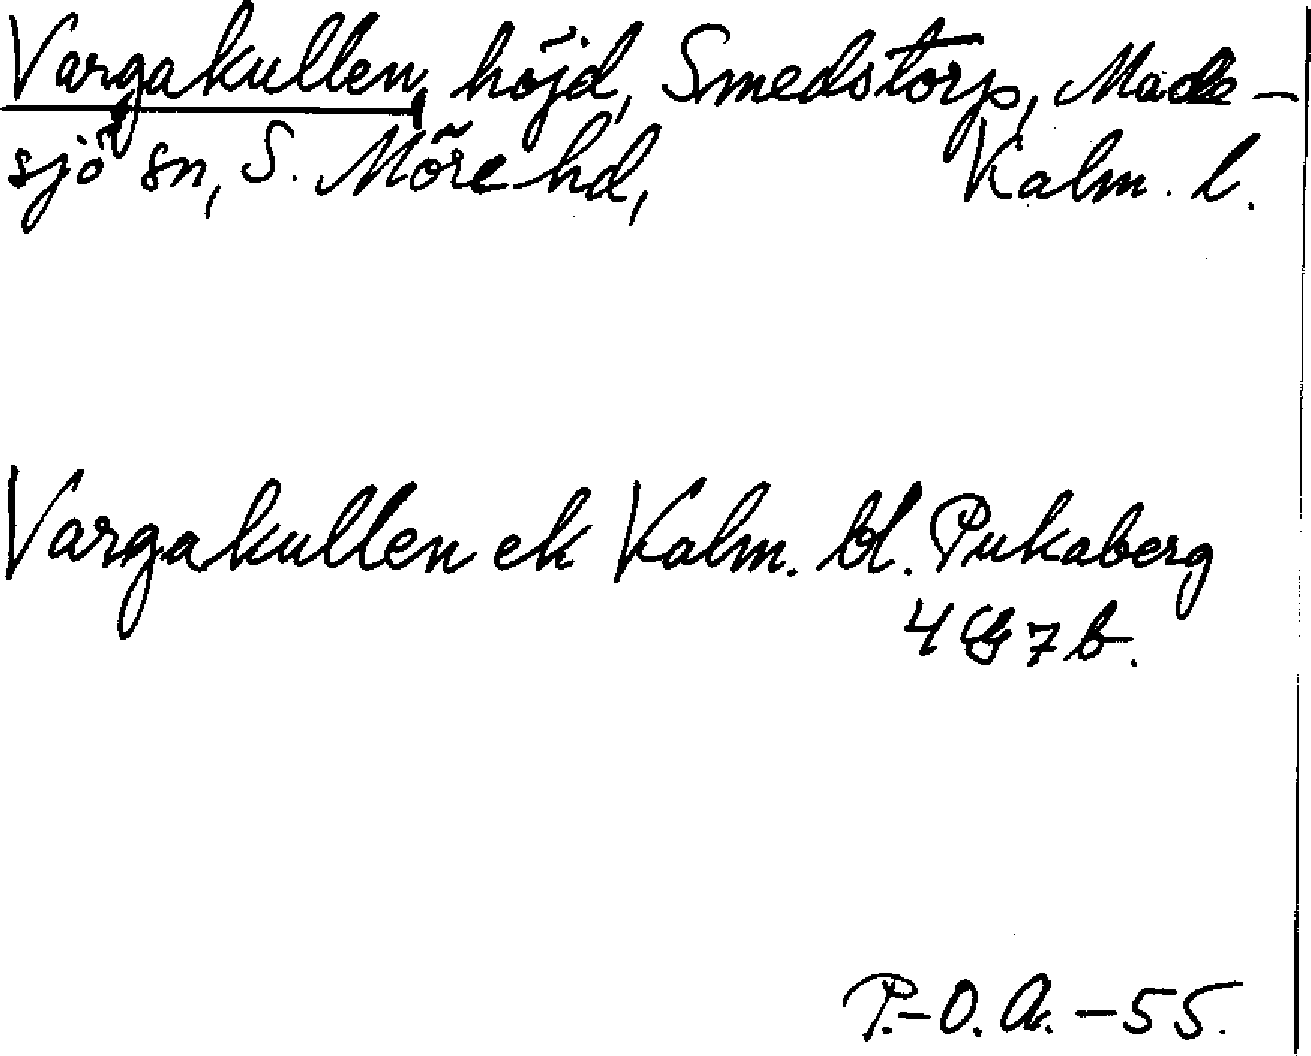 Vargakullen, höjd, Smedstorp, Made-
sjö sn, S. Möre hd, Kalm. l.
Vargakullen ek Kalm. bl. Pukaberg
4 G 7 b.
P.-O. A. -55.